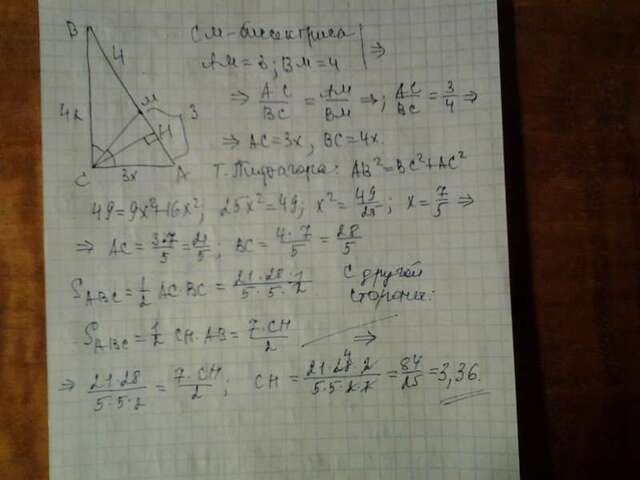 B
4
4x
M
H
3
C
3x
A
CM-биссектриса
AM=3; BM=4 ⇒
⇒ AC/BC = AM/BM ⇒; AC/BC = 3/4 ⇒
⇒ AC=3x, BC=4x.
Т. Пифагора: AB²=BC²+AC²
49=9x²+16x²; 25x²=49; x²=49/25; x=7/5 ⇒
⇒ AC=3·7/5=21/5; BC=4·7/5=28/5
S_ABC=1/2 AC·BC=21·28·1/5·5·2 С другой
стороны:
S_ABC=1/2 CH·AB=7·CH/2 ⇒
⇒ 21·28/5·5·2=7·CH/2; CH=21·28·2/5·5·2·7=84/25=3,36.